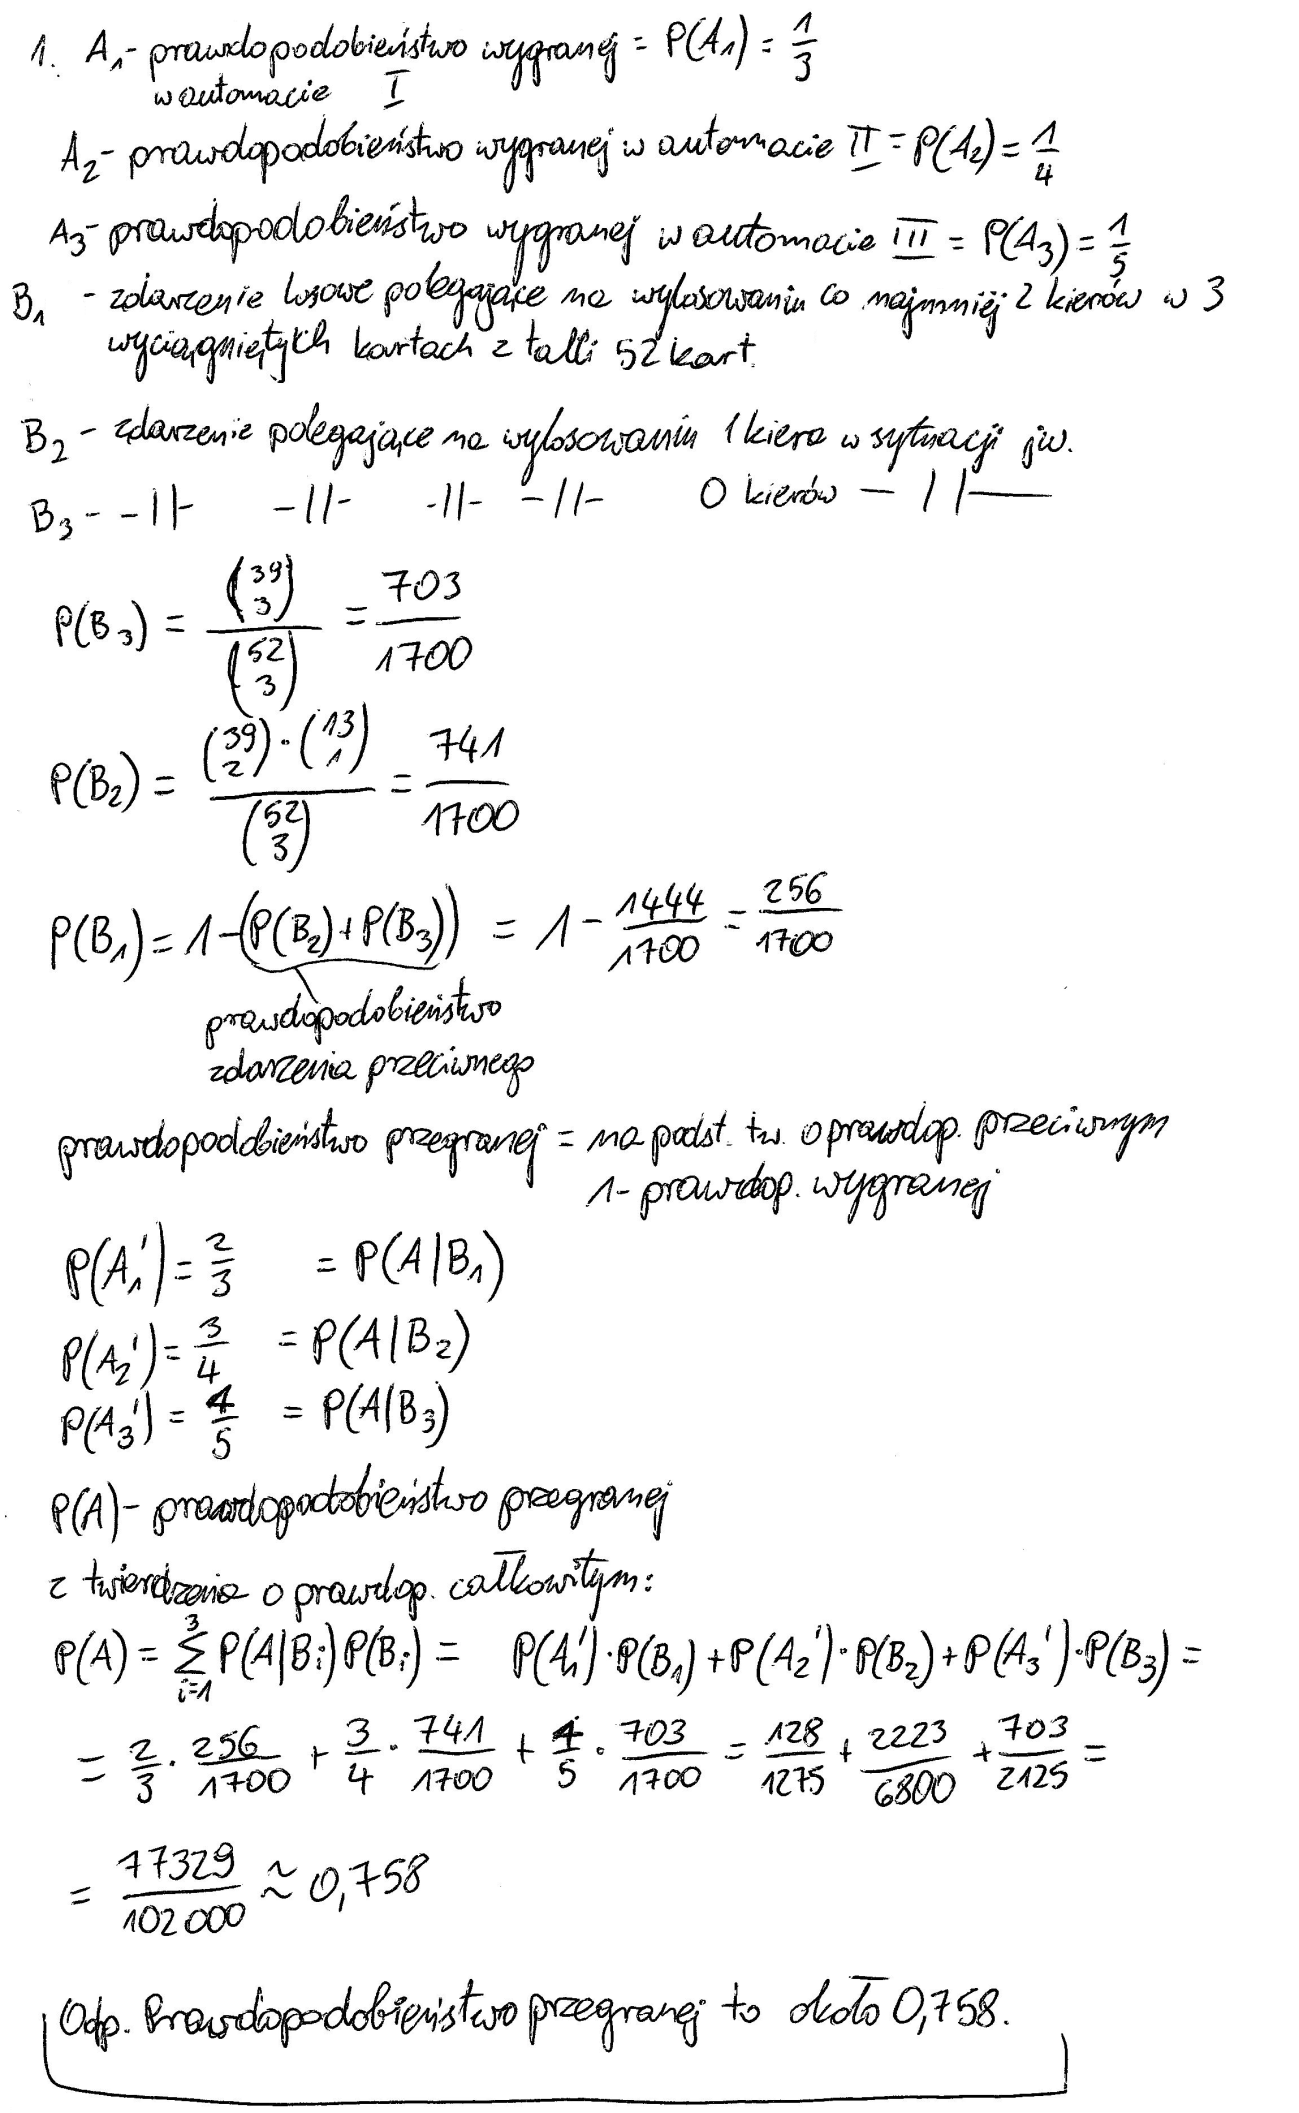 1. A₁- prawdopodobieństwo wygranej = P(A₁) = 1/3
w automacie I
A₂- prawdopodobieństwo wygranej w automacie II = P(A₂) = 1/4
A₃- prawdopodobieństwo wygranej w automacie III = P(A₃) = 1/5
B₁ - zdarzenie losowe polegające na wylosowaniu co najmniej 2 kierów w 3
wyciągniętych kartach z talli 52 kart.
B₂ - zdarzenie polegające na wylosowaniu 1 kiera w sytuacji jw.
B₃ - -||- -||- -||- -||- 0 kierów — || —
P(B₃) = (39 3)/(52 3) = 703/1700
P(B₂) = (39 2)·(13 1)/(52 3) = 741/1700
P(B₁) = 1-(P(B₂)+P(B₃)) = 1 - 1444/1700 = 256/1700
prawdopodobieństwo
zdarzenia przeciwnego
prawdopodobieństwo przegranej = na podst. tw. o prawdop. przeciwnym
1- prawdop. wygranej
P(A₁') = 2/3 = P(A|B₁)
P(A₂') = 3/4 = P(A|B₂)
P(A₃') = 4/5 = P(A|B₃)
P(A)- prawdopodobieństwo przegranej
z twierdzenia o prawdop. całkowitym:
P(A) = ∑³ᵢ₌₁ P(A|Bᵢ)P(Bᵢ) = P(A₁')·P(B₁)+P(A₂')·P(B₂)+P(A₃')·P(B₃) =
= 2/3 · 256/1700 + 3/4 · 741/1700 + 4/5 · 703/1700 = 128/1275 + 2223/6800 + 703/2125 =
= 77329/102000 ≈ 0,758
Odp. Prawdopodobieństwo przegranej to około 0,758.